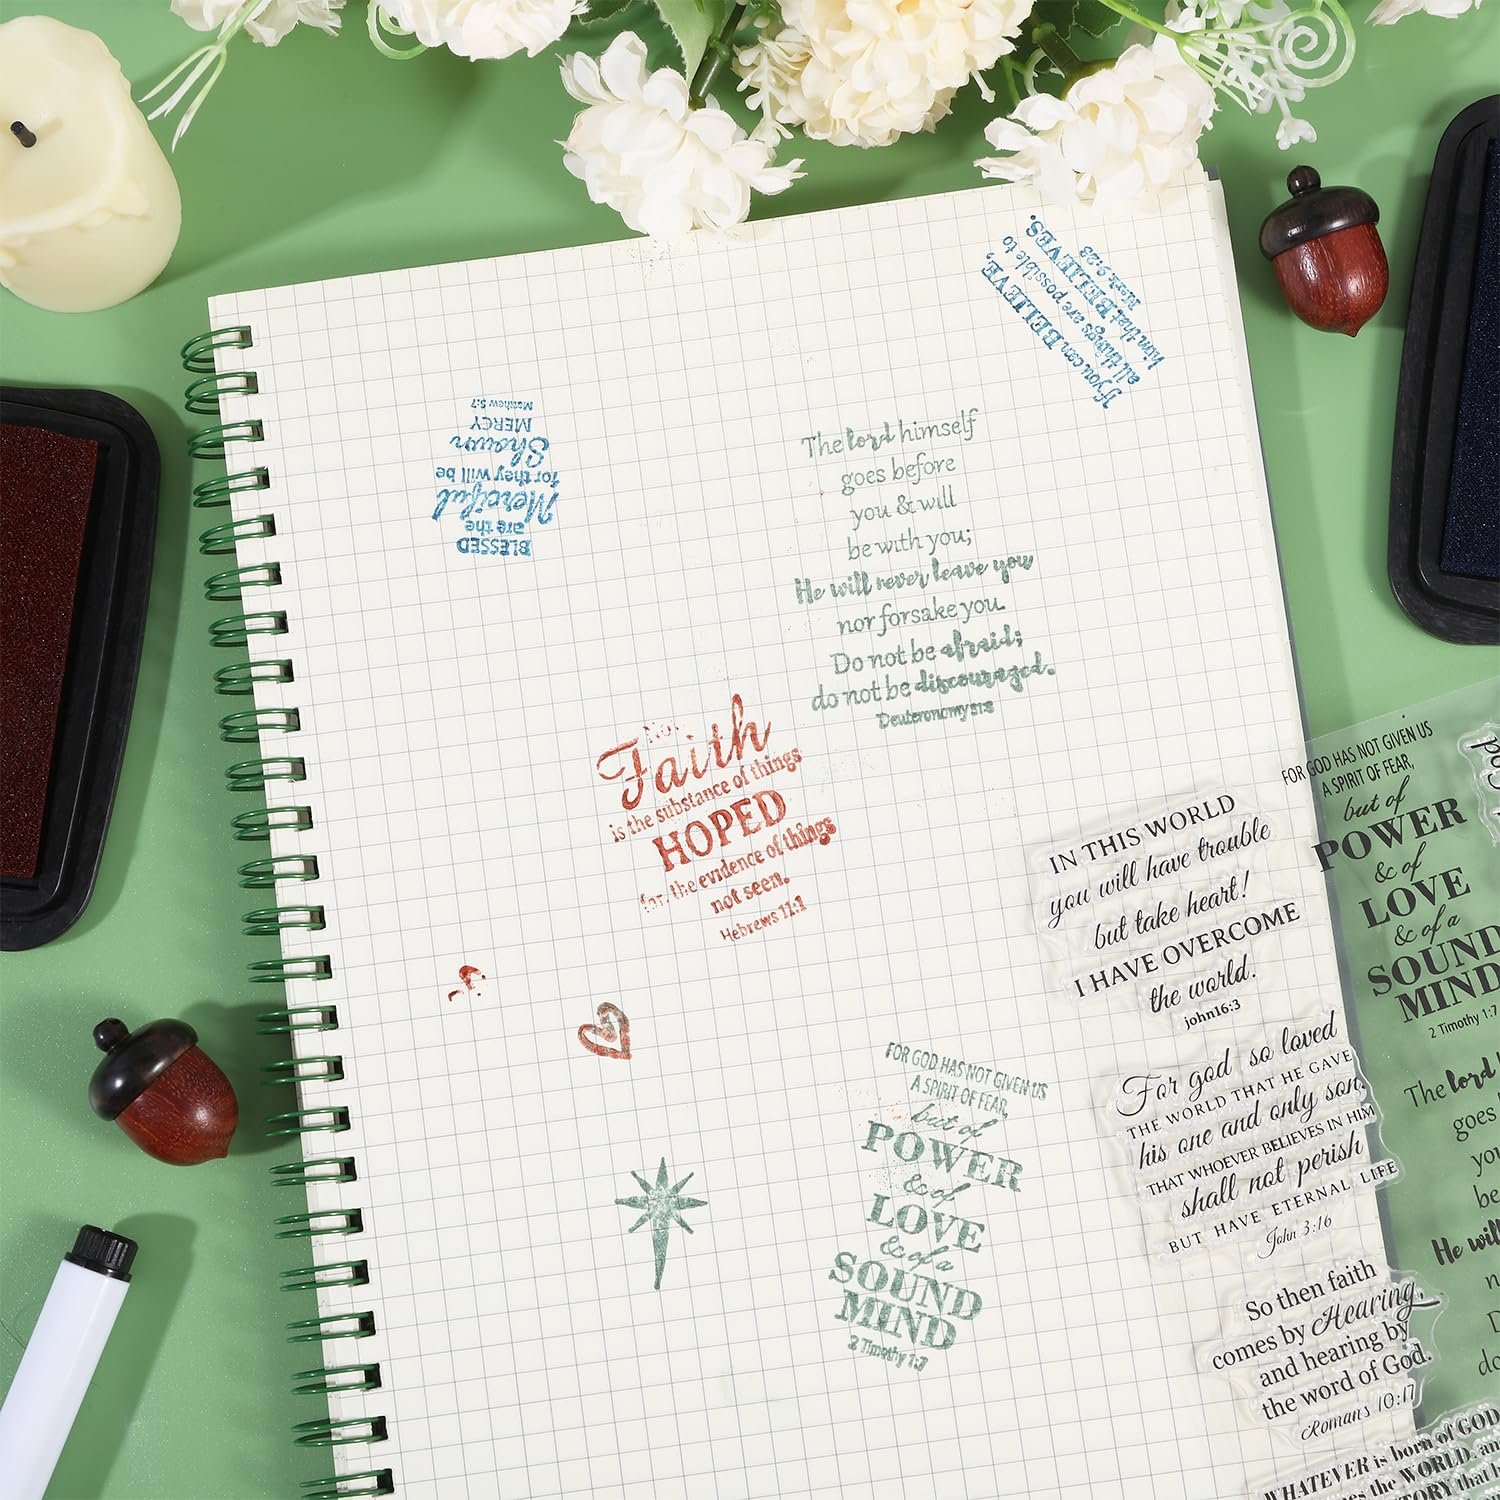 If you can BELIEVE,
all things are possible to
him that BELIEVES.
Mark 9:23
BLESSED
are the
Merciful
for they will be
Shown
MERCY
Matthew 5:7
The lord himself
goes before
you & will
be with you;
He will never leave you
nor forsake you.
Do not be afraid;
do not be discouraged.
Deuteronomy 31:8
Now
Faith
is the substance of things
HOPED
for, the evidence of things
not seen.
Hebrews 11:1
FOR GOD HAS NOT GIVEN US
A SPIRIT OF FEAR,
but of
POWER
& of
LOVE
& of a
SOUND
MIND
2 Timothy 1:7
IN THIS WORLD
you will have trouble
but take heart!
I HAVE OVERCOME
the world.
john16:3
For god so loved
THE WORLD THAT HE GAVE
his one and only son.
THAT WHOEVER BELIEVES IN HIM
shall not perish
BUT HAVE ETERNAL LIFE
John 3:16
So then faith
comes by Hearing,
and hearing by
the word of God.
Romans 10:17
WHATEVER is born of GOD
the WORLD, an
that h
FOR GOD HAS NOT GIVEN US
A SPIRIT OF FEAR,
but of
POWER
& of
LOVE
& of a
SOUND
MIND
2 Timothy 1:7
The lord
goes
He will